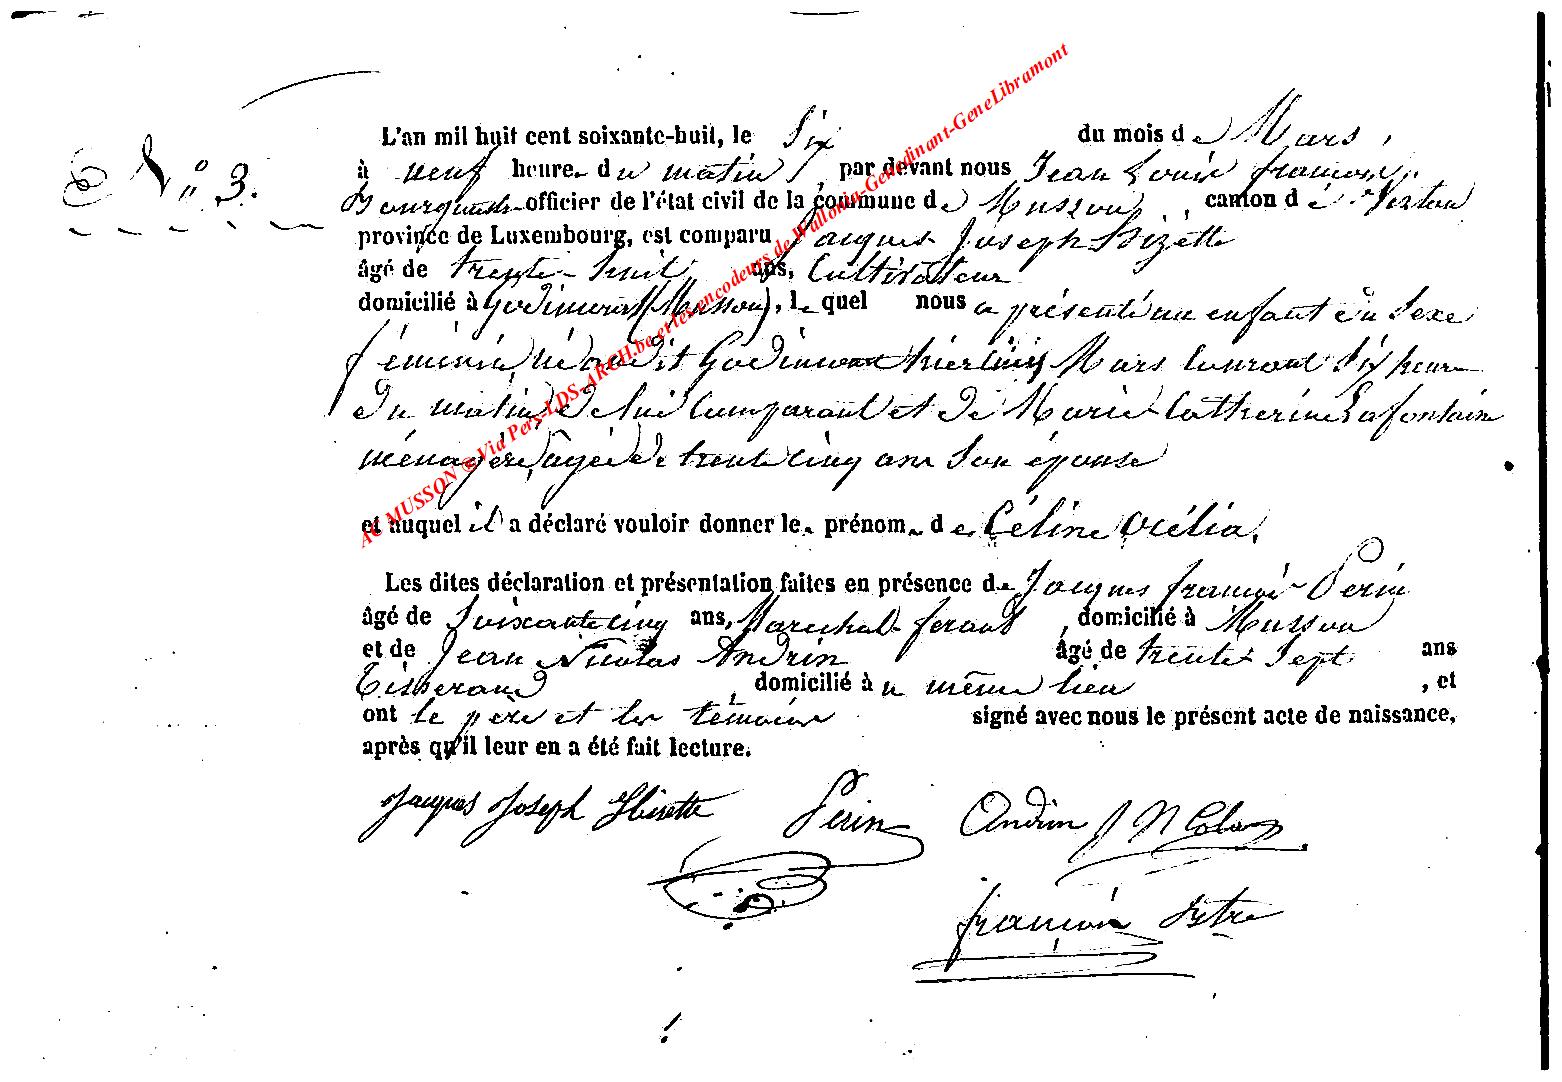 N° 3.
L'an mil huit cent soixante-huit, le Six du mois de Mars,
à neuf heure du matin, par devant nous Jean Louis françois
officier de l'état civil de la commune de Musson, canton de Virton
province de Luxembourg, est comparu Jacques Joseph Hizette
âgé de trente-huit ans, Cultivateur
domicilié à Godincourt (Musson), le quel nous a présenté un enfant du Sexe
féminin né audit Godincourt hier cinq Mars courant Six heure
du matin de lui Comparant et de Marie-Catherine Lafontain
ménagère, agée de trente cinq ans Son épouse
et auquel il a déclaré vouloir donner le prénom de Céline Océlia.
Les dites déclaration et présentation faites en présence de Jacques françois Perin
âgé de Soixante cinq ans, Marechal-ferant, domicilié à Musson
et de Jean Nicolas Andrin âgé de trente-Sept ans
Tisserand, domicilié au même lieu, et
ont le père et les témoins signé avec nous le présent acte de naissance,
après qu'il leur en a été fait lecture.
Jacques Joseph Hizette Perin Andrin J N Colas
françois
AC MUSSON @ Via Pers-LDS-ARCH.be et les encodeurs de Wallonia-Genedinant-GeneLibramont